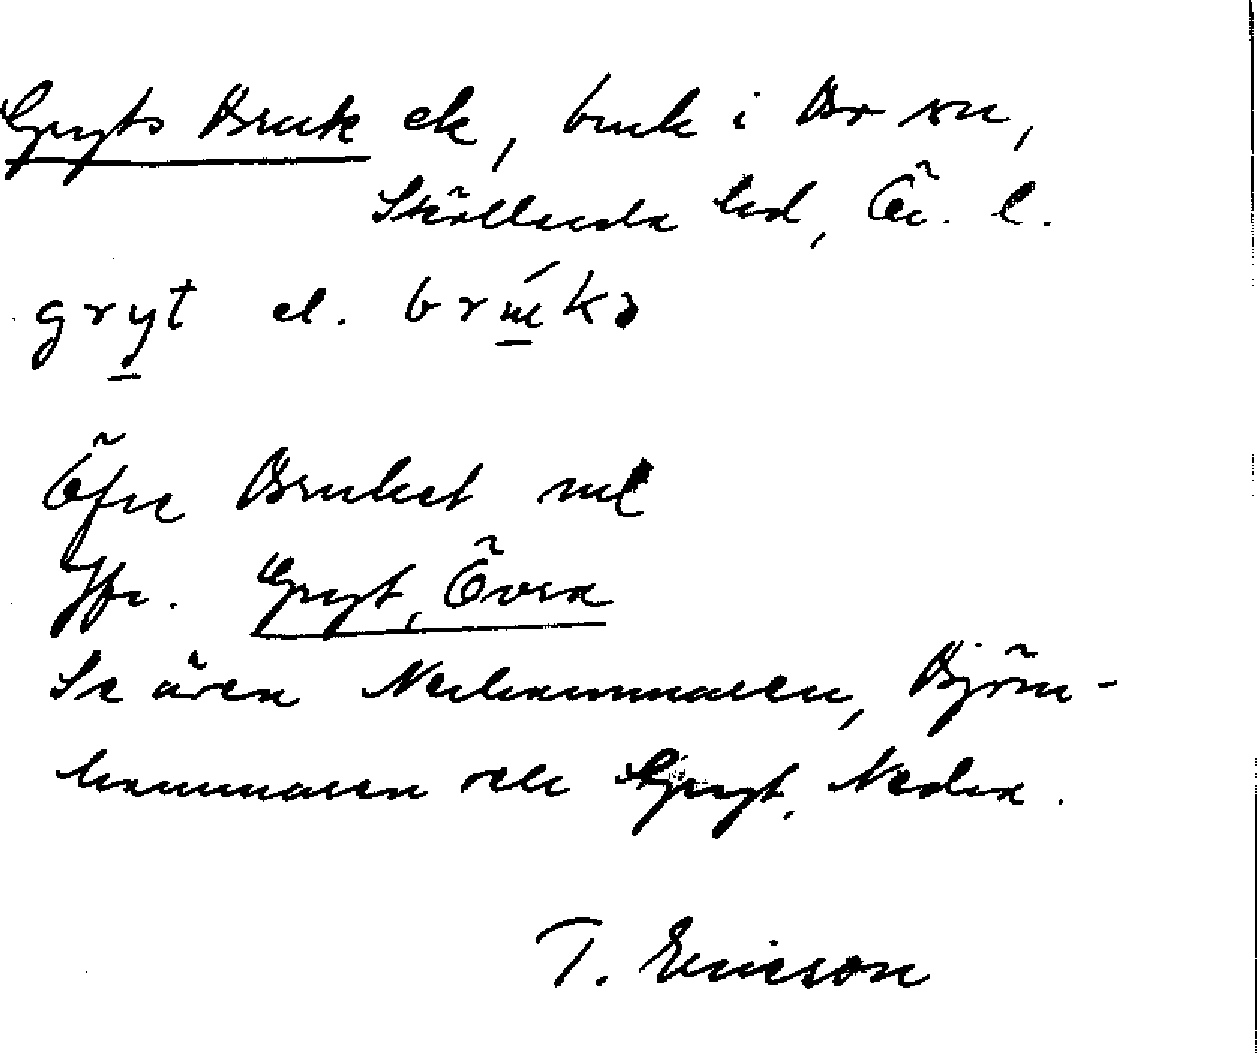 Gryts Bruk ek, bruk i Bo sn,
Skällersta hd, Ö. l.
gryt el. brúkə
Öfre Bruket
Jfr. Gryt, Övra
Se även Nerhammaren, Björn-
hammaren och Gryt, Nedra.
T. Ericson